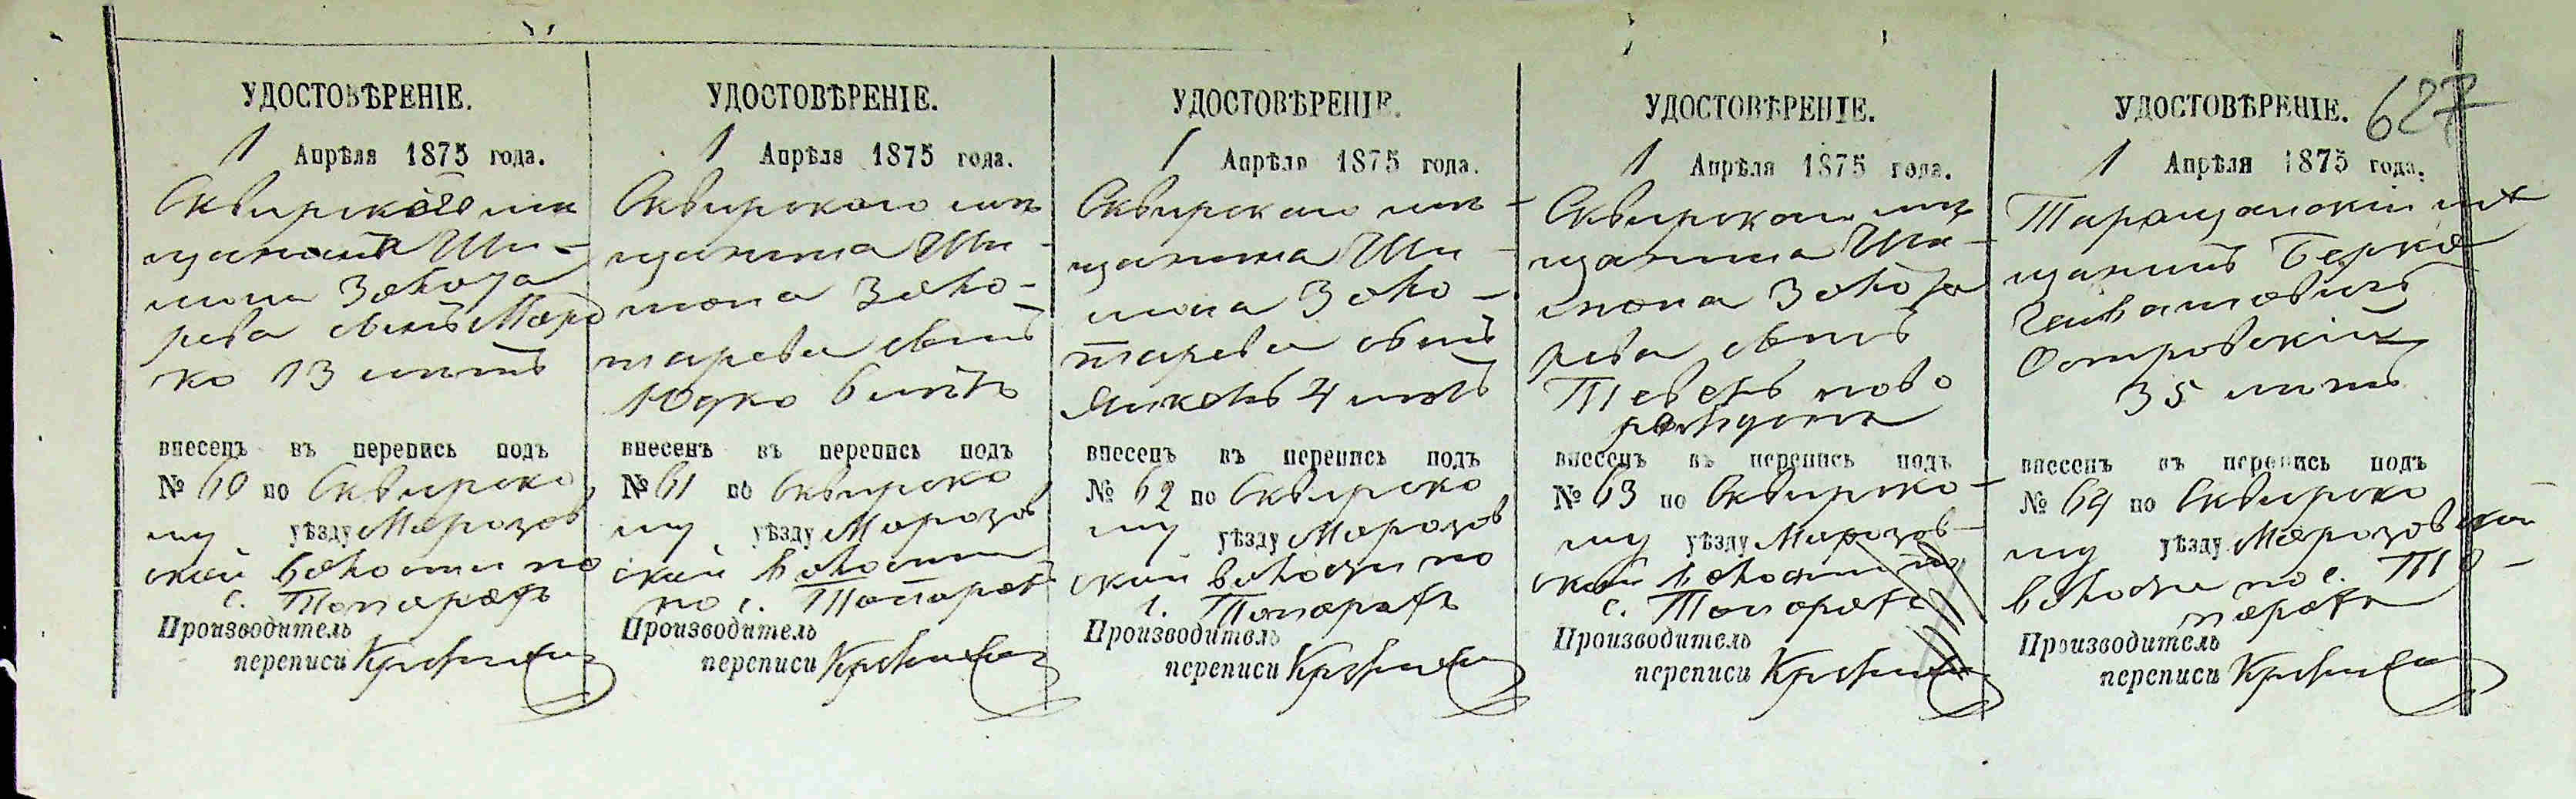 627
УДОСТОВѢРЕНІЕ.
1 Апрѣля 1875 года.
Сквирскаго мѣ
щанина Ши-
мона Золота
рева сынъ Мор
ко 13 лѣтъ
внесенъ въ перепись подъ
№ 60 по Сквирско
му уѣзду Морозов
ской волости по
с. Топорахъ
Производитель
переписи
УДОСТОВѢРЕНІЕ.
1 Апрѣля 1875 года.
Сквирскаго мѣ
щанина Ши-
мона Золо-
тарева сынъ
Юдко 6 лѣтъ
внесенъ въ перепись подъ
№ 61 по Сквирско
му уѣзду Морозов
ской волости
по с. Топорах
Производитель
переписи
УДОСТОВѢРЕНІЕ.
1 Апрѣля 1875 года.
Сквирскаго мѣ-
щанина Ши-
мона Золо-
тарева сынъ
4 лѣтъ
внесенъ въ перепись подъ
№ 62 по Сквирско
му уѣзду Морозов
ской волости по
с. Топорахъ
Производитель
переписи
УДОСТОВѢРЕНІЕ.
1 Апрѣля 1875 года.
Сквирскаго мѣ
щанина Ши-
мона Золота
рева сынъ
ново
внесенъ въ перепись подъ
№ 63 по Сквирско-
му уѣзду Морозов-
ской волости по
с. Топорахъ
Производитель
переписи
УДОСТОВѢРЕНІЕ.
1 Апрѣля 1875 года.
Таращанскій мѣ
щанинъ Берко
Островскій
35 лѣтъ
внесенъ въ перепись подъ
№ 64 по Сквирско
му уѣзду Морозовской
волости по с. То-
порахъ
Производитель
переписи